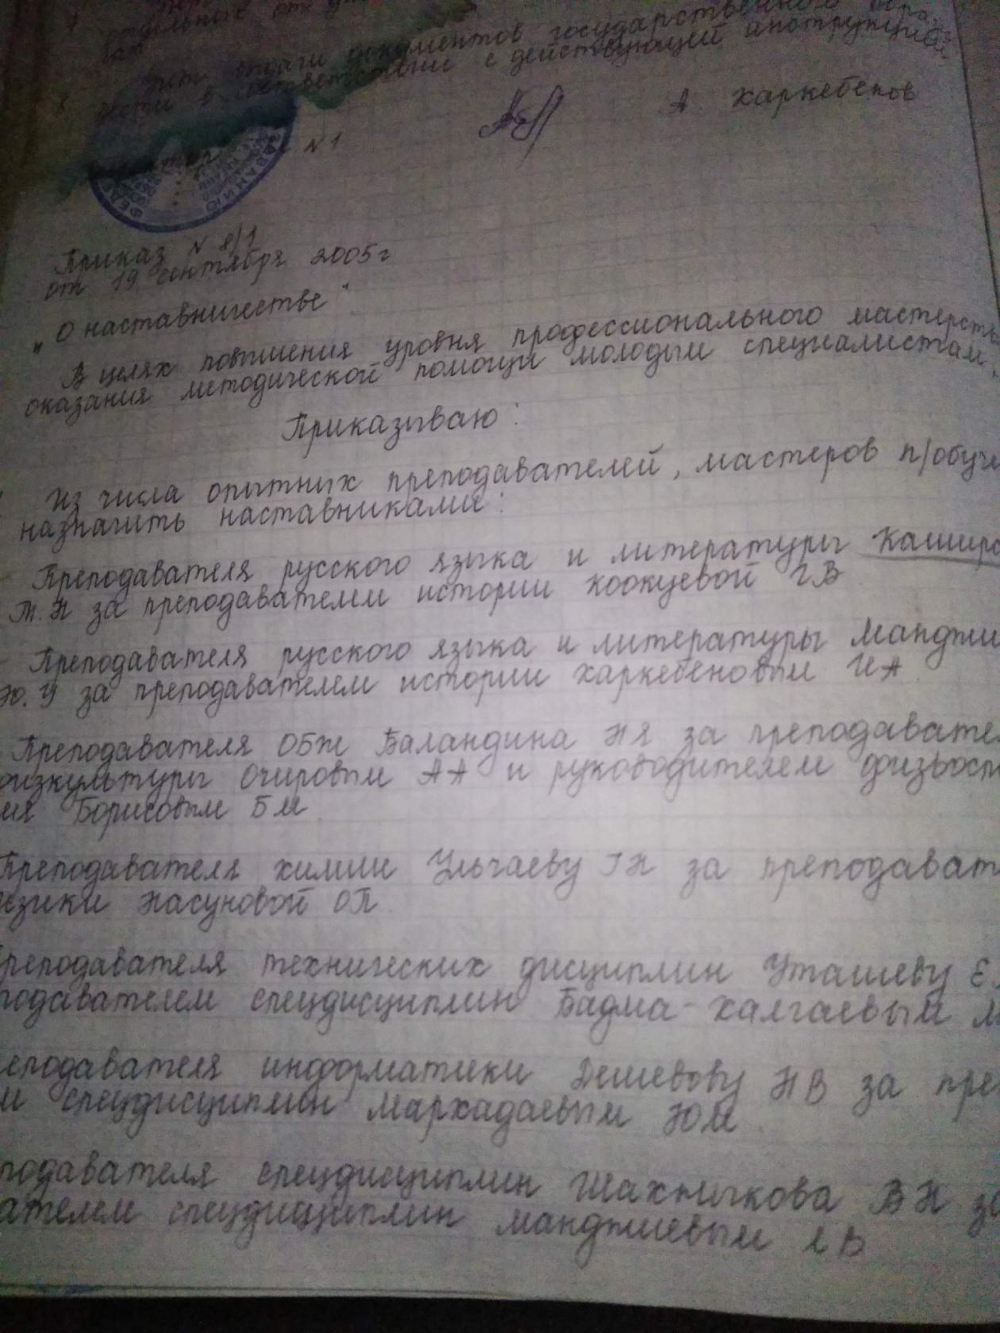 отдельных от
выдачи документов государственного
в соответствии с действующей инструкцией
А Харкебенов
N 1
Приказ N 8/1
от 19 сентября 2005г
„О наставничестве"
В целях повышения уровня профессионального мастерства
оказания методической помощи молодым специалистам,
Приказываю:
Из числа опытных преподавателей, мастеров п/обуче
назначить наставниками:
Преподавателя русского языка и литературы Каширо
Т.Н за преподавателем истории Кокуевой Г.В
- Преподавателя русского языка и литературы Манджи
Ю.У за преподавателем истории Харкебеновым И А
Преподавателя ОБЖ Баландина Н Я за преподавател
физкультуры Очировым А А и руководителем физвосп
ия Борисовым Б М
Преподавателя химии Ульчаеву Г Н за преподават
изики Насуновой О П
реподавателя технических дисциплин Уташеву Е.
подавателем спецдисциплин Бадма-Халгаевым М
еподавателя информатики Дешевову Н В за пре
м спецдисциплин Мархадаевым Ю М
подавателя спецдисциплин Шахнычкова В Н за
ателем спецдисциплин Манджиевым Л В